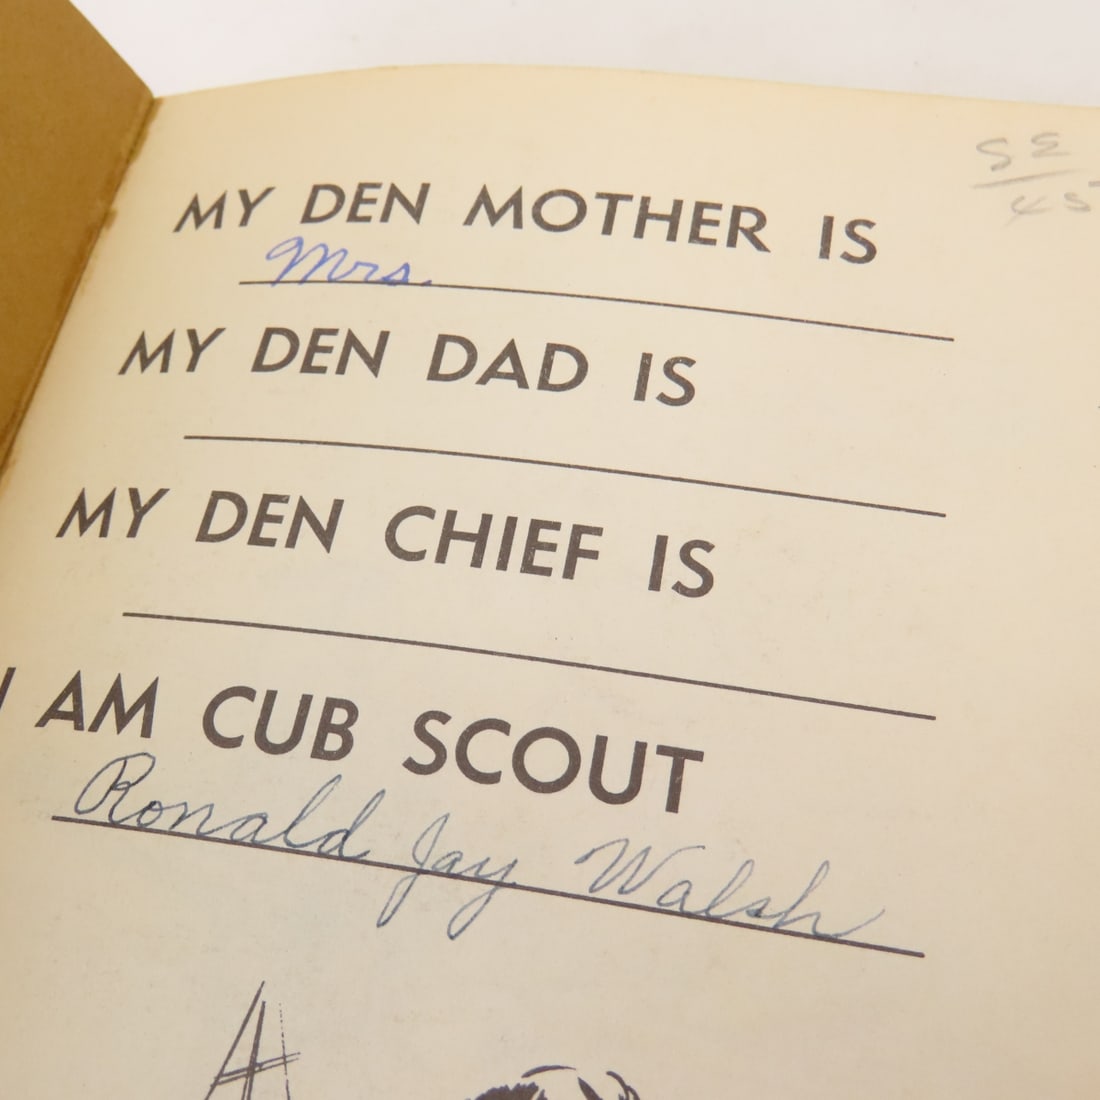 MY DEN MOTHER IS
Mrs.
MY DEN DAD IS
MY DEN CHIEF IS
I AM CUB SCOUT
Ronald Jay Walsh